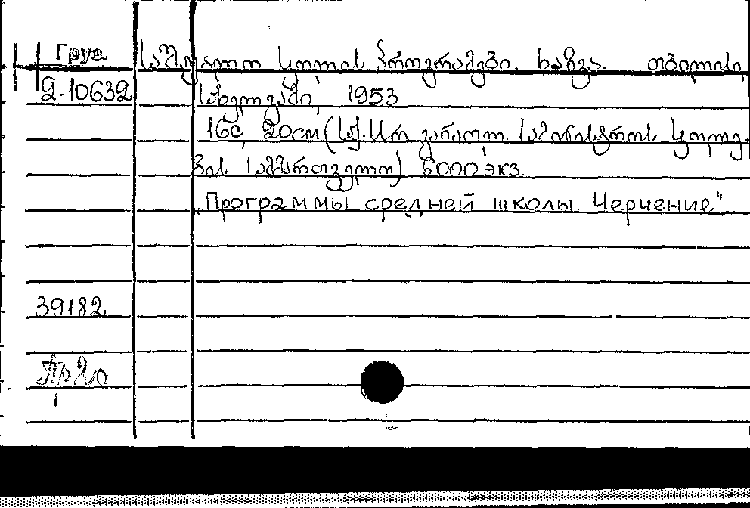 Груз
საშუალო სკოლის პროგრამები. ხაზვა. თბილისი,
2-10632
სახელგამი, 1953
16с, 20см (სქ. სსრ განათლ. სამინისტრო. სკოლე-
ბის სამმართველო) 5000 экз.
„Программы средней школы. Черчение"
39182